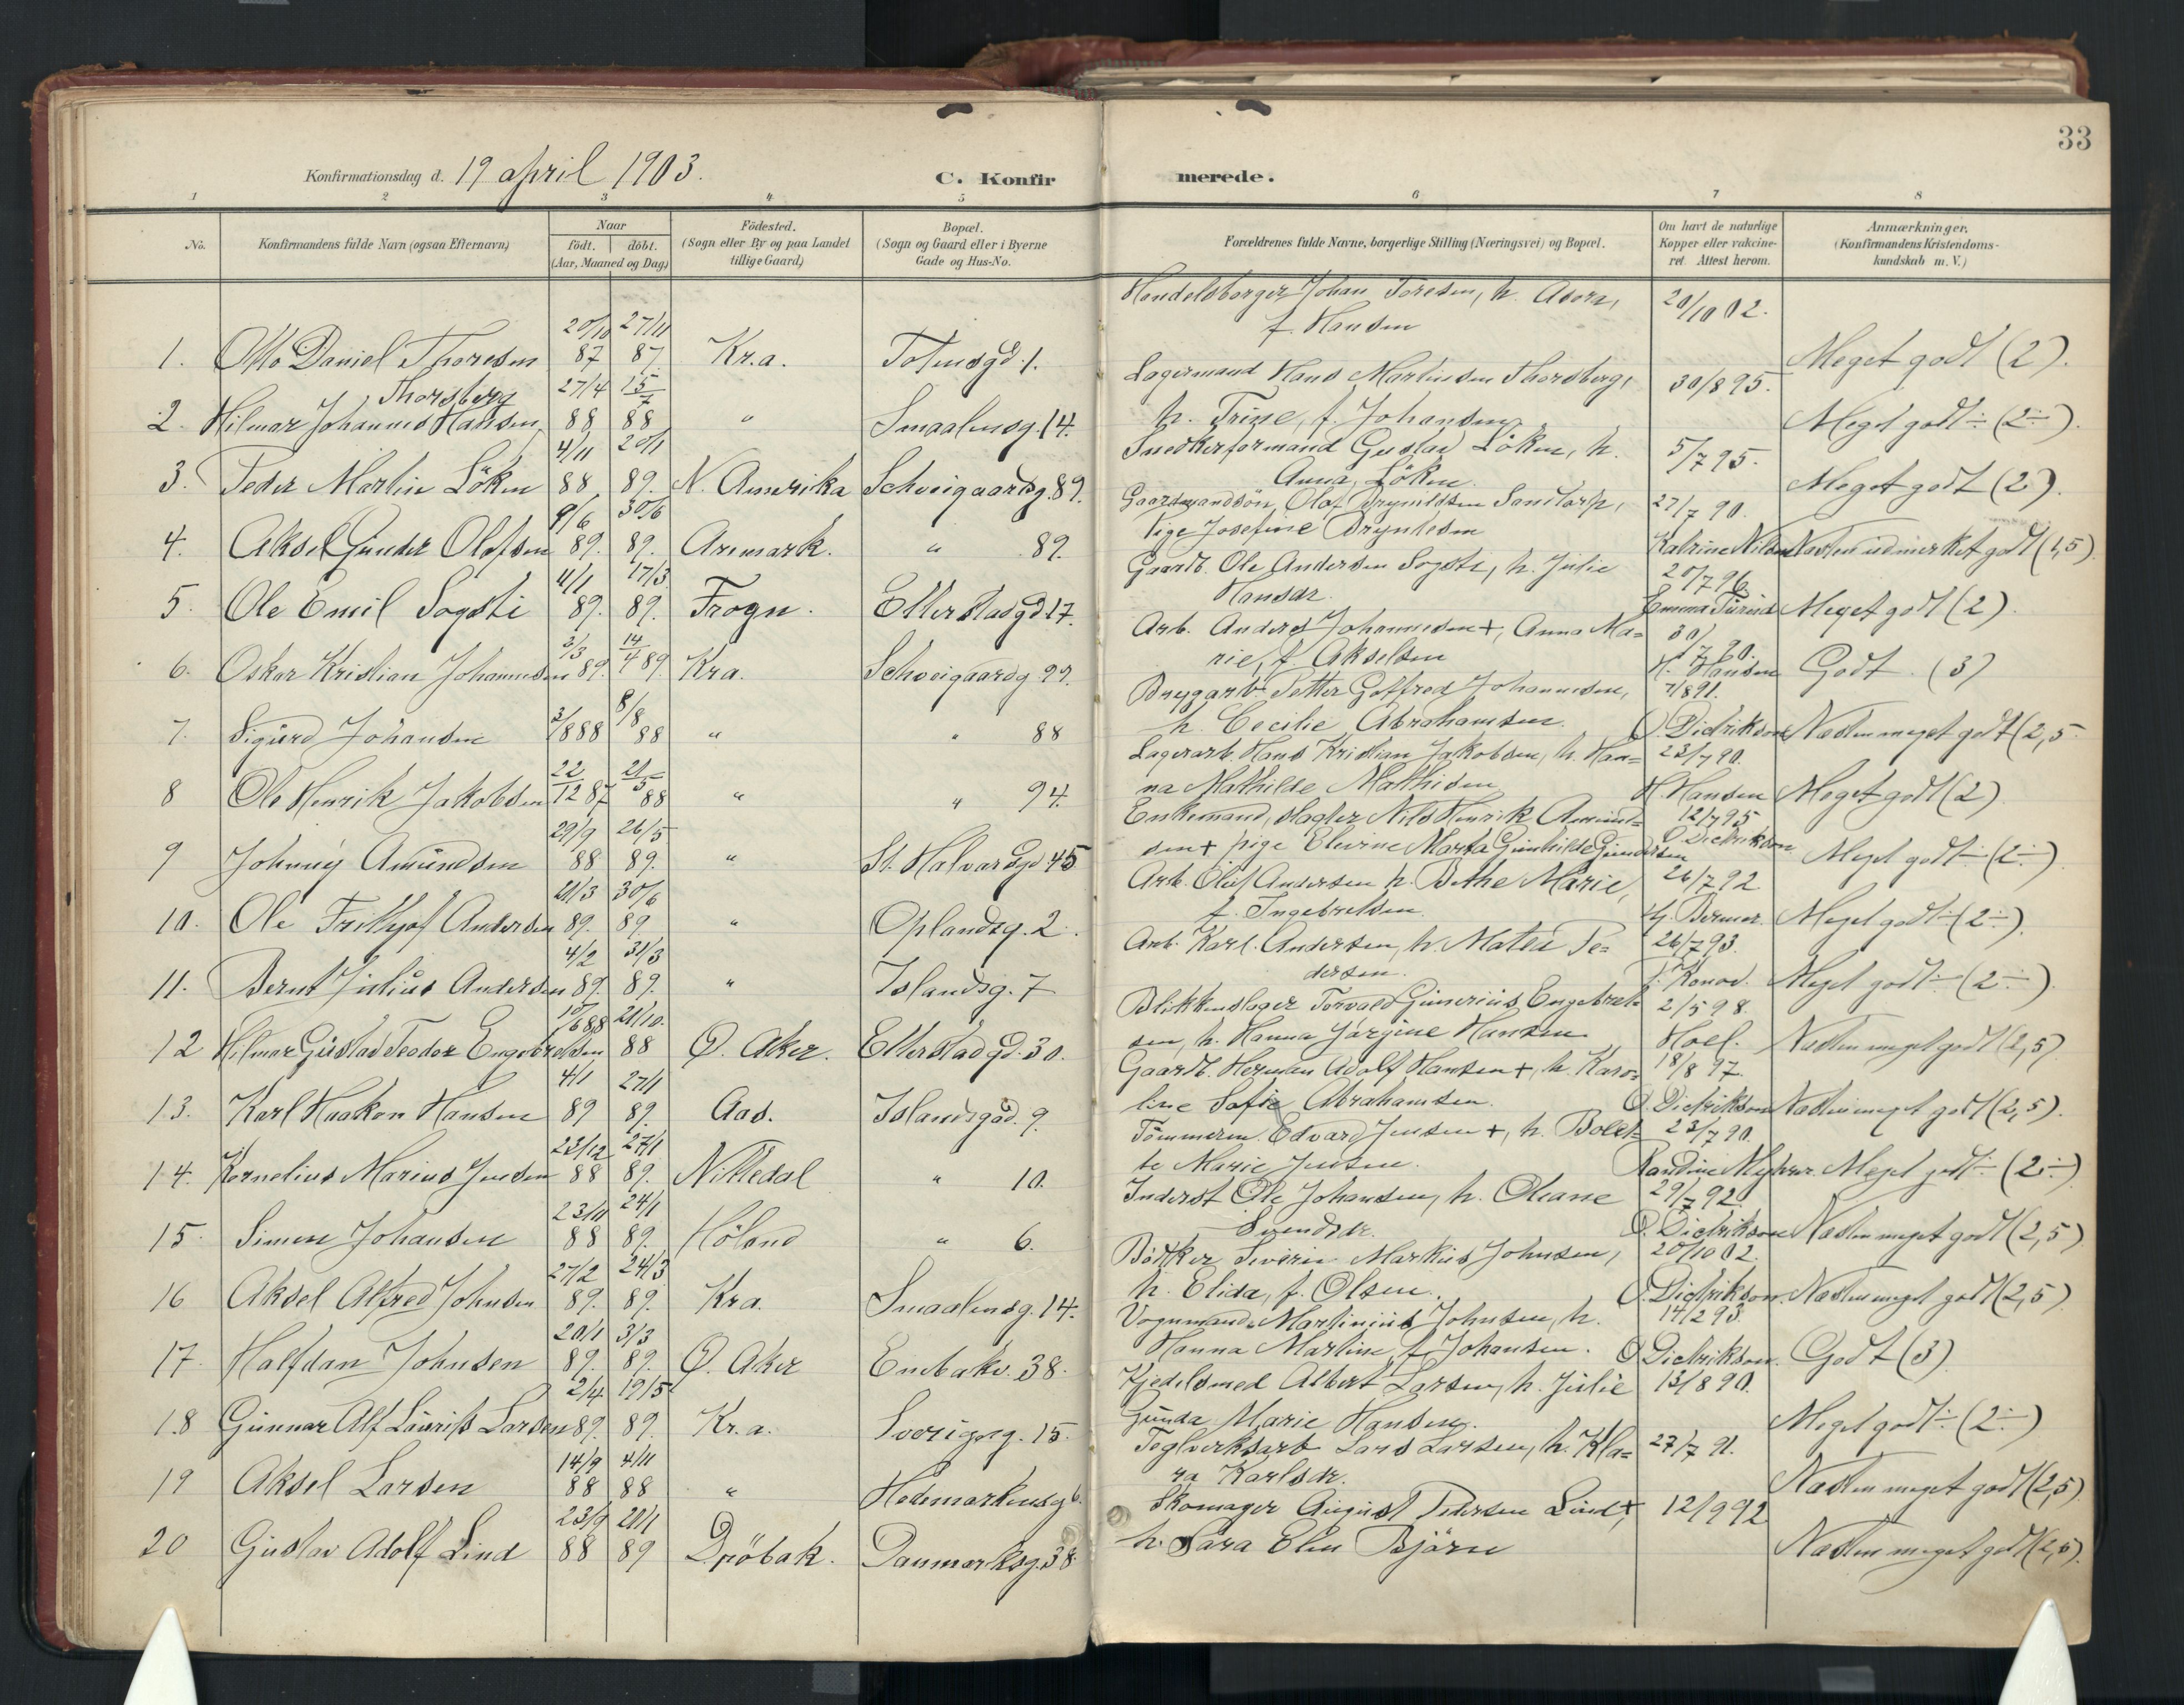 33
Konfirmationsdag d. 19 april 1903.
C. Konfir merede.
1 2 3 4 5 6 7 8
No.
Konfirmandens fulde Navn (ogsaa Efternavn)
Naar
født. døbt.
(Aar, Maaned og Dag)
Fødested.
(Sogn eller By og paa Landet
tillige Gaard)
Bopæl.
(Sogn og Gaard eller i Byerne
Gade og Hus-No.
Forældrenes fulde Navne, borgerlige Stilling (Næringsvei) og Bopæl.
Om havt de naturlige
Kopper eller vakcine-
ret. Attest herom.
Anmærkninger.
(Konfirmandens Kristendoms-
kundskab m. V.)
20/10 27/11
1. Otto Daniel Thoresen 87 87 Kr.a. 1.
Handelsborger Johan Toresen, h.
f. Hansen
20/10 02.
Meget godt (2).
Thorsberg 27/4 15/7
2. Hilmar Johannes Hansen 88 88 " Smaalensg. 14.
Lagermand Hans Martinsen Thorsberg,
h. Trine, f. Johansen
30/8 95.
Meget godt ÷ (2÷).
4/11 20/1
3. Peder Martin Löken 88 89. N. Amerika Schveigaardsg. 89.
Snedkerformand Gustav Löken, h.
Anna Löken.
5/7 95.
Meget godt (2).
9/6 30/6
4. Aksel Gunder Olafsen 89. 89. Aremark. " 89.
Gaardmandsön, Olaf Brynildsen
Pige Josefine
27/7 90.
Katrine Nilsen
Næsten udmerket godt (1,5)
11/1 17/3
5. Ole Emil Sogsti 89. 89. Frogn. Etterstadgd 17.
Gaardb. Ole Andersen Sogsti, h. Julie
Hansdr.
20/7 96
Emma
Meget godt (2)
3/3 14/4
6. Oskar Kristian Johannesen 89. 89. Kra. Schveigaardsg. 22.
Arb. Anders Johannesen +, Anna Ma=
rie, f. Akselsen
30/7 90.
H. Hansen
Godt. (3)
3/8 8/8
7. Sigurd Johansen 88 88 " " 88
Bryggarb. Petter Gotfred Johannesen,
h. Cecilie Abrahamsen.
7/8 91.
O. Didriksen
Næsten meget godt (2,5
22/12 21/5
8 Ole Henrik Jakobsen 87 88 " " 94.
Lagerarb. Hans Kristian Jakobsen, h. Han=
na Mathilde Mathisen
23/7 90.
H. Hansen
Meget godt (2)
29/9 26/5
9 Johnny Amundsen 88 89. " St. Halvardsgd 45
Enkemand, slagter Nils Henrik Amund=
sen + pige Elevine Marta Gunhilde Gundersen
12/7 95
O Didriksen
Meget godt ÷ (2÷)
21/3 30/6
10. Ole Frithjof Andersen 89. 89. " Oplandsg. 2.
Arb. Oluf Andersen h. Bethe Marie,
f. Ingebretsen.
26/7 92
Meget godt ÷ (2÷).
4/2 31/3
11. Bernt Julius Andersen 89. 89. " Islandsg. 7
Arb. Karl. Andersen, h. Matea Pe=
dersen.
26/7 93.
J. Konow.
Meget godt ÷ (2÷)
10/6 21/10.
12 Hilmar Gustav Teodor Engebretsen 88 88 Ö. Aker. Etterstadgd. 30.
Blikkenslager Torvald Gunerius Engebret=
sen, h. Hanna Jörgine Hansen
2/5 98.
Hoel.
Næsten meget godt (2,5)
4/1 27/1
13. Karl Haakon Hansen 89 89. Aas. Islandsgad. 9.
Gaardb. Herman Adolf Hansen +, h. Karo=
line Sofie Abrahamsen.
18/8 97.
O. Didriksen
Næsten meget godt (2,5).
23/12 27/1
14. Kornelius Marius Jensen 88 89. Nittedal " 10.
Tömmerm. Edvard Jensen +, h. Bolet=
te Marie Jensen.
23/7 90.
Randine Myhrer.
Meget godt ÷ (2÷)
23/11 24/1
15. Simen Johansen 88 89. Höland " 6.
Inderst Ole Johansen, h. Oleane
Svendsdr.
29/7 92.
O. Didriksen
Næsten meget godt (2,5)
27/2 24/3
16 Aksel Alfred Johnsen 89. 89. Kra. Smaalensg. 14.
Bödker Severin Markus Johnsen,
h. Elida, f. Olsen.
20/10 02
O. Didriksen.
Næsten meget godt (2,5)
20/1 3/3
17. Halfdan Johnsen 89. 89. Ö. Aker Enebakv. 38.
Vognmand Martinius Johnsen, h.
Hanna Martine, f. Johansen.
14/2 93.
O Didriksen.
Godt (3)
2/4 19/5
18 Gunnar Alf Lauritz Larsen 89. 89. Kr.a. Sverigesg. 15.
Kjedelsmed Albert Larsen, h. Julie
Gunda Marie Hansen.
13/8 90.
Meget godt ÷ (2÷)
14/9 4/11
19 Aksel Larsen 88 88 " Hedemarkensg 6.
Teglverksarb Lars Larsen, h. Kla=
ra Karlsdr.
27/7 91.
Næsten meget godt (2,5)
23/9 21/1
20 Gustav Adolf Lind 88 89 Dröbak. Danmarksg. 38
Skomager August Pedersen Lind +,
h. Sara Elen Björn
12/9 92
Næsten meget godt (2,5).